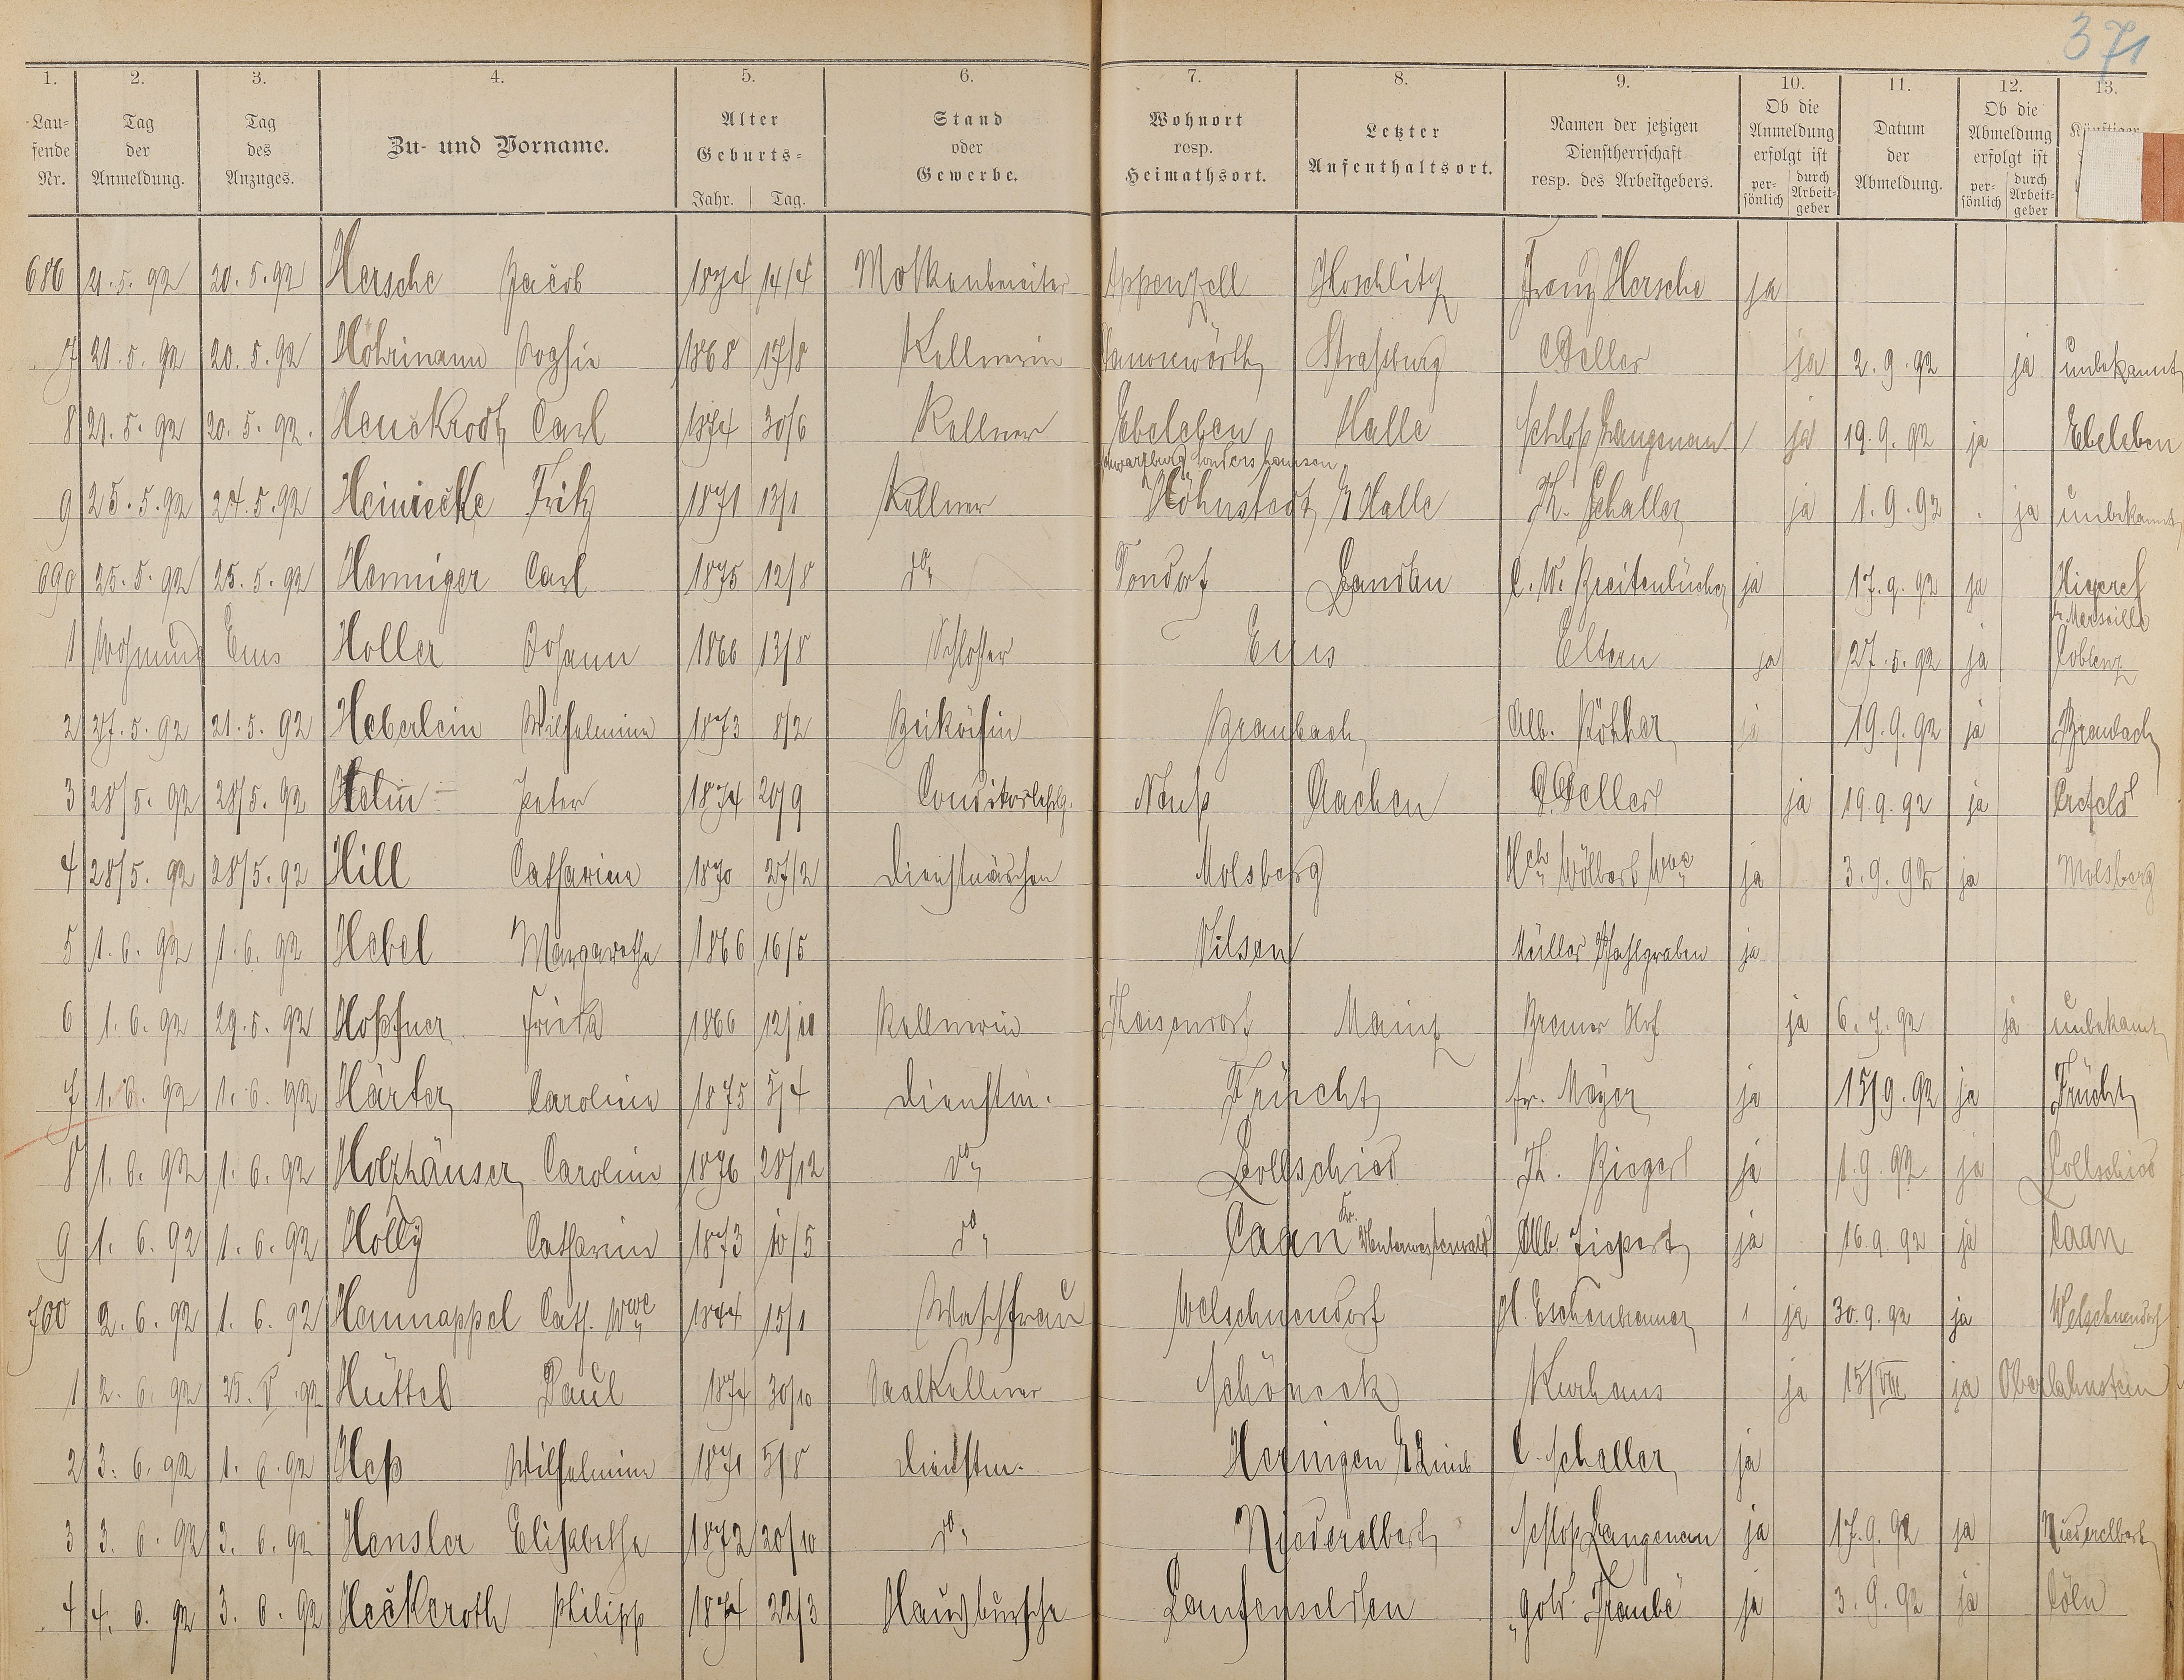 371
1. 2. 3. 4. 5. 6. 7. 8. 9. 10. 11. 12. 13.
Laufende Nr. Tag der Anmeldung. Tag des Anzuges. Zu- und Vorname. Alter Geburts- Jahr. Tag. Stand oder Gewerbe. Wohnort resp. Heimathsort. Letzter Aufenthaltsort. Namen der jetzigen Dienstherrschaft resp. des Arbeitgebers. Ob die Anmeldung erfolgt ist persönlich durch Arbeitgeber Datum der Abmeldung. Ob die Abmeldung erfolgt ist persönlich durch Arbeitgeber Künftiger
686 21.5.92 20.5.92 Hersche Jacob 1874 14/4 Molkenbereiter Appenzell Franz Hersche ja
7 21.5.92 20.5.92 Höhrmann Sophie 1868 17/8 Kellnerin Straßburg Geller ja 2.9.92 ja unbekannt
8 21.5.92 20.5.92. Henckrodt Carl 1874 30/6 Kellner Ebeleben Halle Schloß Langenau / ja 19.9.92 ja Ebeleben
Schwarzburg Sondershausen
9 25.5.92 24.5.92 Heinicke Fritz 1871 13/1 Kellner Höhnstedt Halle Th. Schaller ja 1.9.92 ja unbekannt
690 25.5.92 25.5.92 Henniger Carl 1875 12/8 do Tondorf Landau C. W. Breitenbücher ja 17.9.92 ja
b. Marseille
1 Wohnung Ems Holler Johann 1866 13/8 Schlosser Ems Eltern ja 27.5.92 ja Coblenz
2 27.5.92 21.5.92 Heberlein Wilhelmine 1873 8/2 Beiköchin Braubach Alb. ja 19.9.92 ja Braubach
3 28/5.92 28/5.92 Helm Peter 1874 20/9 Conditorlehrlg. Neuß Aachen G. Geller ja 19.9.92 ja Crefeld
4 28/5.92 28/5.92 Hill Catharine 1870 27/2 Dienstmädchen Molsberg Hch Wwe ja 3.9.92 ja Molsberg
5 1.6.92 1.6.92 Hebel Margarethe 1866 16/5 Vilsen Müller Pfahlgraben ja
6 1.6.92 29.5.92 Hoffner Frieda 1866 12/10 Kellnerin Mainz Bremer Hof ja 6.7.92 ja unbekannt
7 1.6.92 1.6.92 Härter Caroline 1875 5/4 Dienstm. Frücht Fr. Meyer ja 15/9.92 ja Frücht
8 1.6.92 1.6.92 Holzhäuser Caroline 1876 28/12 do Lollschied Th. Biegert ja 1.9.92 ja Lollschied
9 1.6.92 1.6.92 Holly Catharine 1873 10/5 do Caan Kr. Unterwesterwald Alb. ja 16.9.92 ja Caan
700 2.6.92 1.6.92 Hannappel Cath. Wwe 1844 15/1 Waschfrau Welschneudorf H. Eschenbrenner 1 ja 30.9.92 ja Welschneudorf
1 2.6.92 25.V.92 Hüttel Paul 1874 30/10 Saalkellner Schöneck Kurhaus ja 15/VIII ja Oberlahnstein
2 3.6.92 1.6.92 Heß Wilhelmine 1871 5/8 Dienstm. C. Schaller ja
3 3.6.92 3.6.92 Hensler Elisabethe 1872 20/10 do Niederelbert Schloß Langenau ja 17.9.92 ja Niederelbert
4 4.6.92 3.6.92 Heckeroth Philipp 1874 22/3 Hausbursche Laufenselden "Gold. Traube" ja 3.9.92 ja Cöln